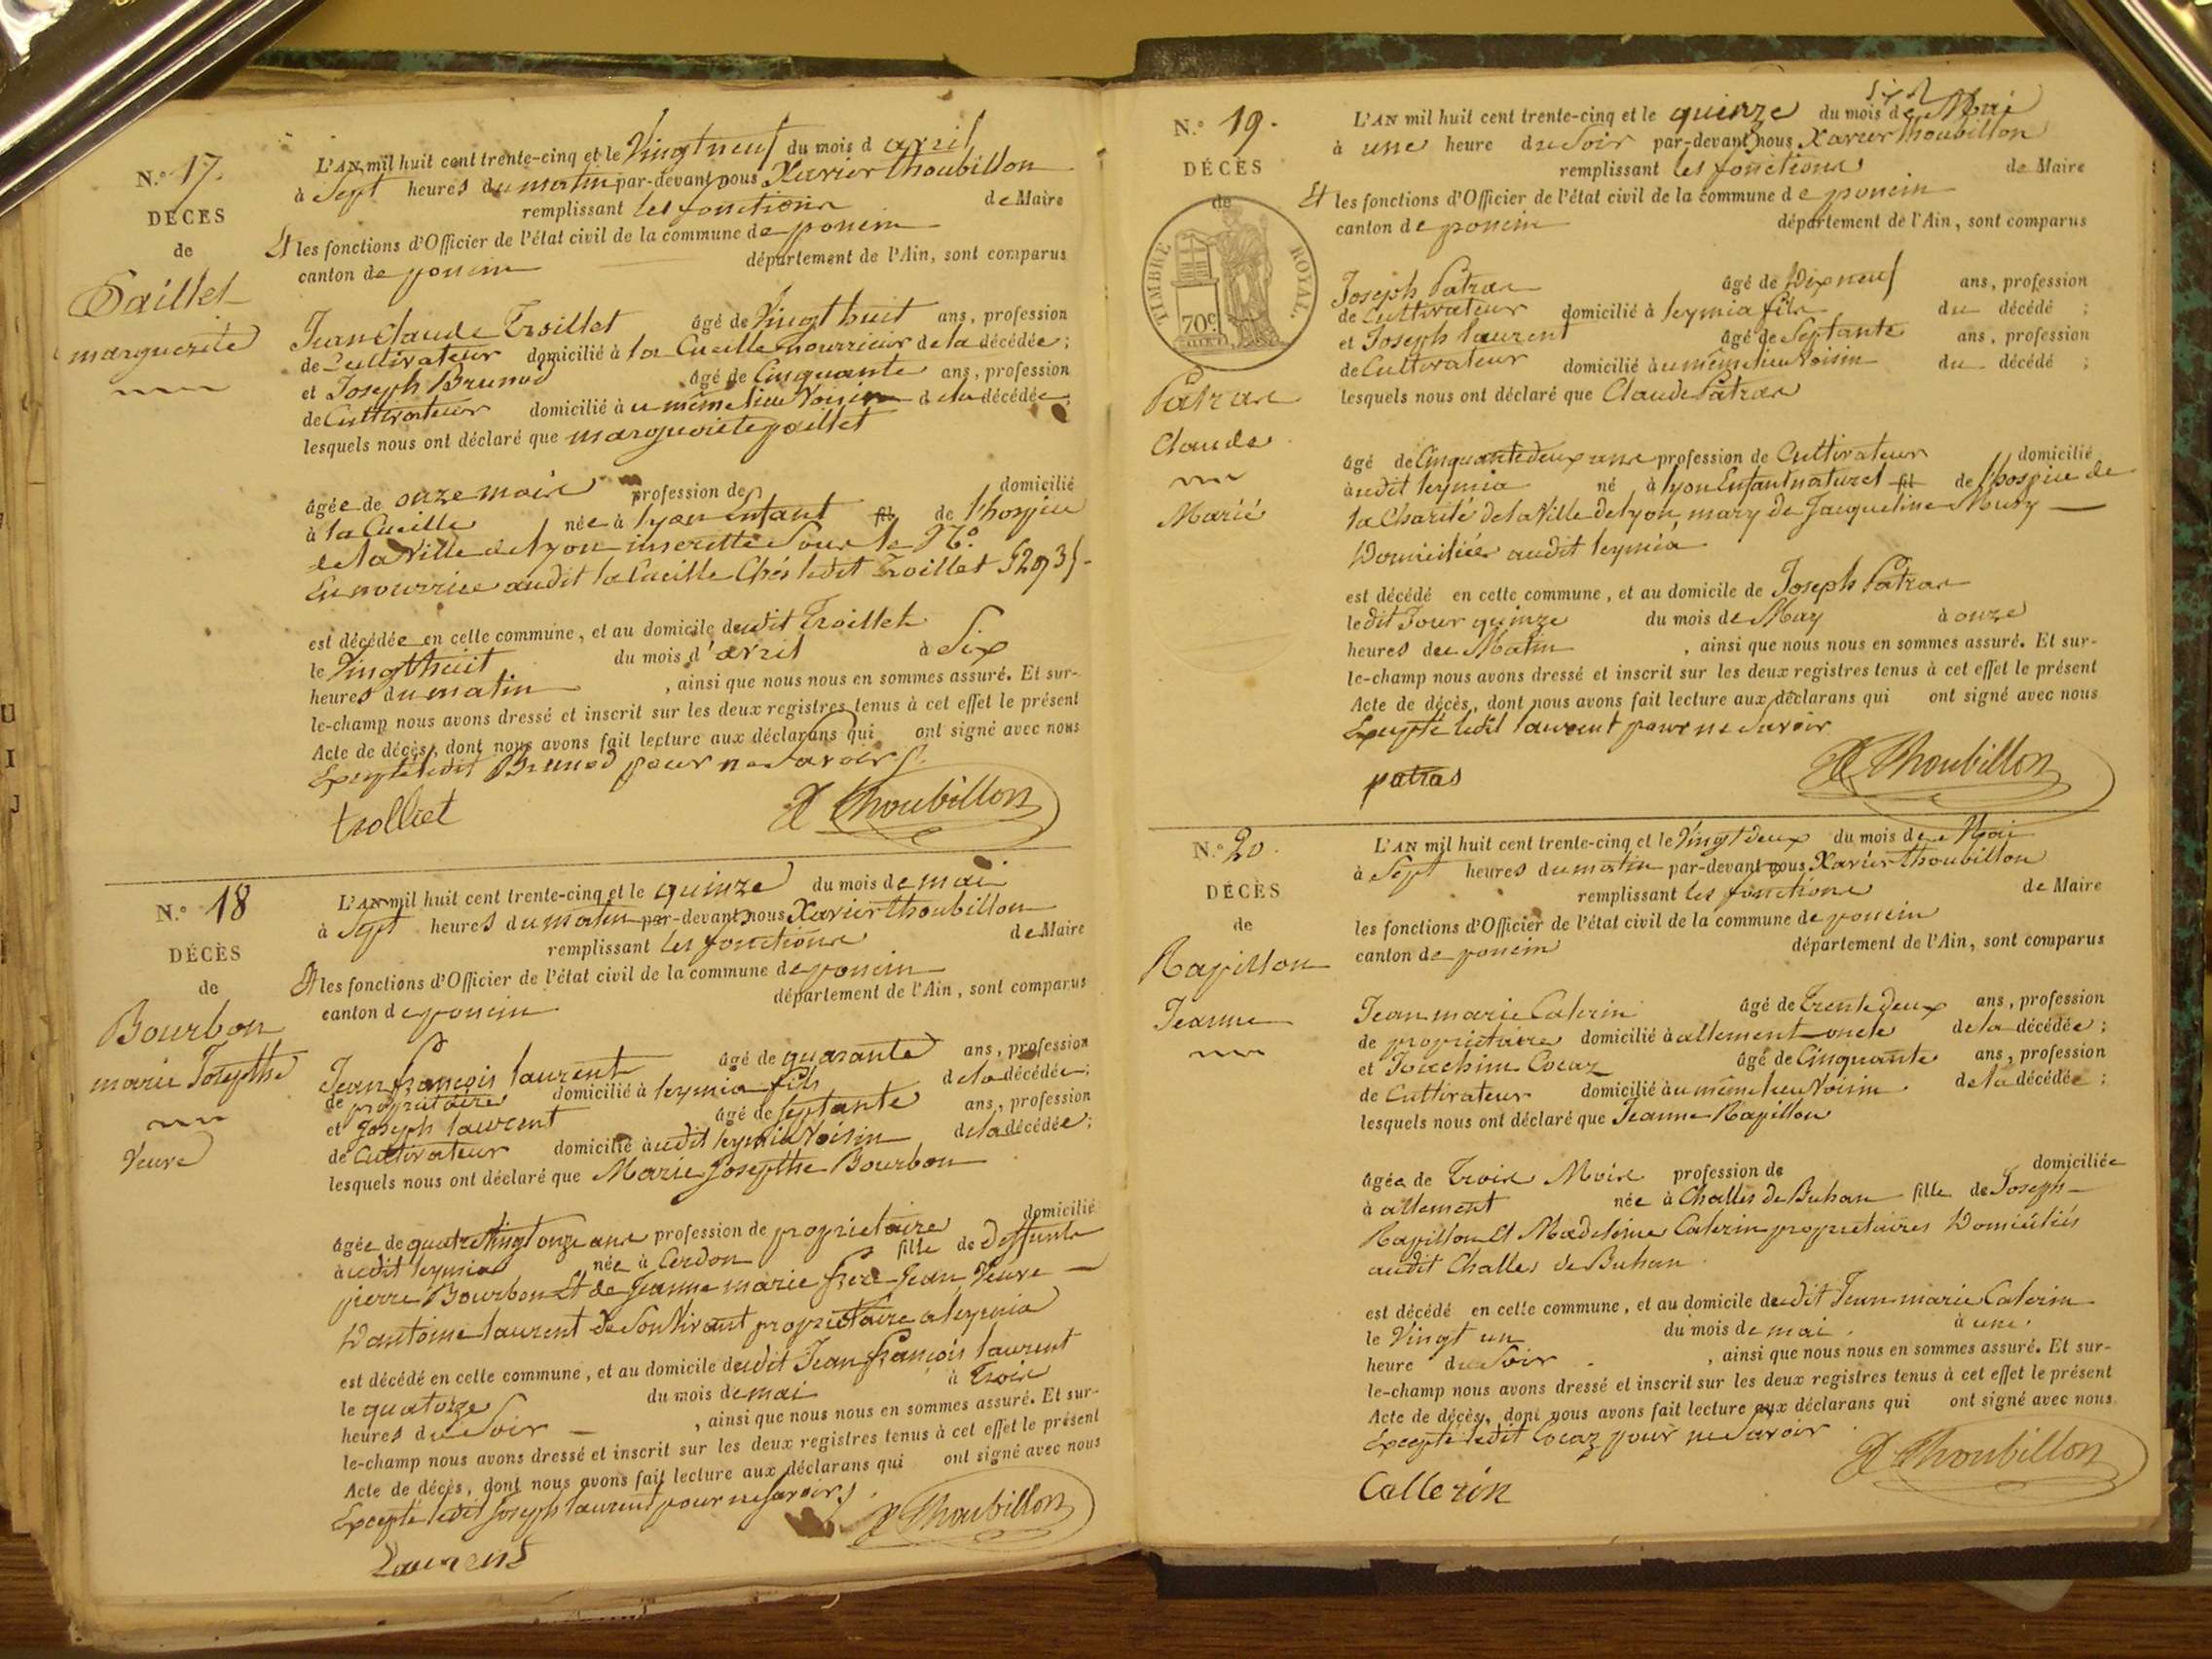 N.° 17.
DÉCÈS
de
Paillet
marguerite
L'AN mil huit cent trente-cinq et le Vingt neuf du mois d avril
à Sept heures du matin par-devant nous Xavier thoubillon
remplissant les fonctions de Maire
Et les fonctions d'Officier de l'état civil de la commune de poncin
canton de poncin département de l'Ain, sont comparus
Jean Claude Troillet âgé de Vingt huit ans, profession
de Cultivateur domicilié à la Cueille nourricier de la décédée;
et Joseph Brunod âgé de Cinquante ans, profession
de Cultivateur domicilié àu même lieu Voisin de la décédée;
lesquels nous ont déclaré que marguerite paillet
âgée de onze mois profession de domicilié
à la Cueille née à lyon Enfant fil de l'hospice
de la Ville de lyon inscritte Sous le N.°
En nourrice audit la Cueille Chés ledit Troillet
est décédée en cette commune, et au domicile dudit Troillet
le Vingt huit du mois d'avril à Six
heures du matin, ainsi que nous nous en sommes assuré. Et sur-
le-champ nous avons dressé et inscrit sur les deux registres tenus à cet effet le présent
Acte de décès, dont nous avons fait lecture aux déclarans qui ont signé avec nous
Excepté ledit Brunod pour ne Savoir
trolliet X Thoubillon
N.° 18
DÉCÈS
de
Bourbon
marie Josepthe
Veuve
L'AN mil huit cent trente-cinq et le quinze du mois de mai
à Sept heures du matin par-devant nous Xavier thoubillon
remplissant les fonctions de Maire
Et les fonctions d'Officier de l'état civil de la commune de poncin
canton de poncin département de l'Ain, sont comparus
Jean françois laurent âgé de quarante ans, profession
de propriétaire domicilié à leymia fils de la décédée;
et Joseph laurent âgé de Septante ans, profession
de Cultivateur domicilié àudit leymia Voisin de la décédée;
lesquels nous ont déclaré que Marie Josepthe Bourbon
âgée de quatre Vingt onze ans profession de propriétaire domicilié
àudit leymia née à Cerdon fille de deffunts
pierre Bourbon Et de Jeanne marie frere Jean Veuve
D'antoine laurent de Son Vivant propriétaire a leymia
est décédé en cette commune, et au domicile dudit Jean françois laurent
le quatorze du mois de mai à Trois
heures du Soir, ainsi que nous nous en sommes assuré. Et sur-
le-champ nous avons dressé et inscrit sur les deux registres tenus à cet effet le présent
Acte de décès, dont nous avons fait lecture aux déclarans qui ont signé avec nous
Excepté ledit Joseph laurent pour ne Savoir
X Thoubillon
Laurent
N.° 19.
DÉCÈS
de
TIMBRE ROYAL.
70 c.
Patras
Claude
Marié
L'AN mil huit cent trente-cinq et le quinze du mois de Mai
à une heure du Soir par-devant nous Xavier thoubillon
remplissant les fonctions de Maire
Et les fonctions d'Officier de l'état civil de la commune de poncin
canton de poncin département de l'Ain, sont comparus
Joseph Patras âgé de Dix neuf ans, profession
de Cultivateur domicilié à leymia fils du décédé ;
et Joseph laurent âgé de Septante ans, profession
de Cultivateur domicilié àu même lieu Voisin du décédé ;
lesquels nous ont déclaré que Claude Patras
âgé de Cinquante deux ans profession de Cultivateur domicilié
àudit leymia né à lyon Enfant naturel fil de l'hospice de
la Charité de la Ville de lyon, mary de Jacqueline Musy
Domiciliée audit leymia
est décédé en cette commune, et au domicile de Joseph Patras
le dit Jour quinze du mois de May à onze
heures du Matin, ainsi que nous nous en sommes assuré. Et sur-
le-champ nous avons dressé et inscrit sur les deux registres tenus à cet effet le présent
Acte de décès, dont nous avons fait lecture aux déclarans qui ont signé avec nous
Excepté ledit laurent pour ne Savoir
patras X Thoubillon
N.° 20.
DÉCÈS
de
Rapillon
Jeanne
L'AN mil huit cent trente-cinq et le Vingt deux du mois de Mai
à Sept heures du matin par-devant nous Xavier thoubillon
remplissant les fonctions de Maire
les fonctions d'Officier de l'état civil de la commune de poncin
canton de poncin département de l'Ain, sont comparus
Jean marie Caterin âgé de Trente deux ans, profession
de propriétaire domicilié à allement oncle de la décédée;
et Joachim Cocaz âgé de Cinquante ans, profession
de Cultivateur domicilié àu même lieu Voisin de la décédée;
lesquels nous ont déclaré que Jeanne Rapillon
âgée de Trois Mois profession de domiciliée
à allement née à Challes de Buhan fille de Joseph
Rapillon Et Madeleine Caterin propriétaires Domiciliés
audit Challes de Buhan
est décédé en cette commune, et au domicile dudit Jean marie Caterin
le Vingt un du mois de mai à une
heure du Soir, ainsi que nous nous en sommes assuré. Et sur-
le-champ nous avons dressé et inscrit sur les deux registres tenus à cet effet le présent
Acte de décès, dont nous avons fait lecture aux déclarans qui ont signé avec nous
Excepté ledit Cocaz pour ne Savoir
X Thoubillon
Callerin